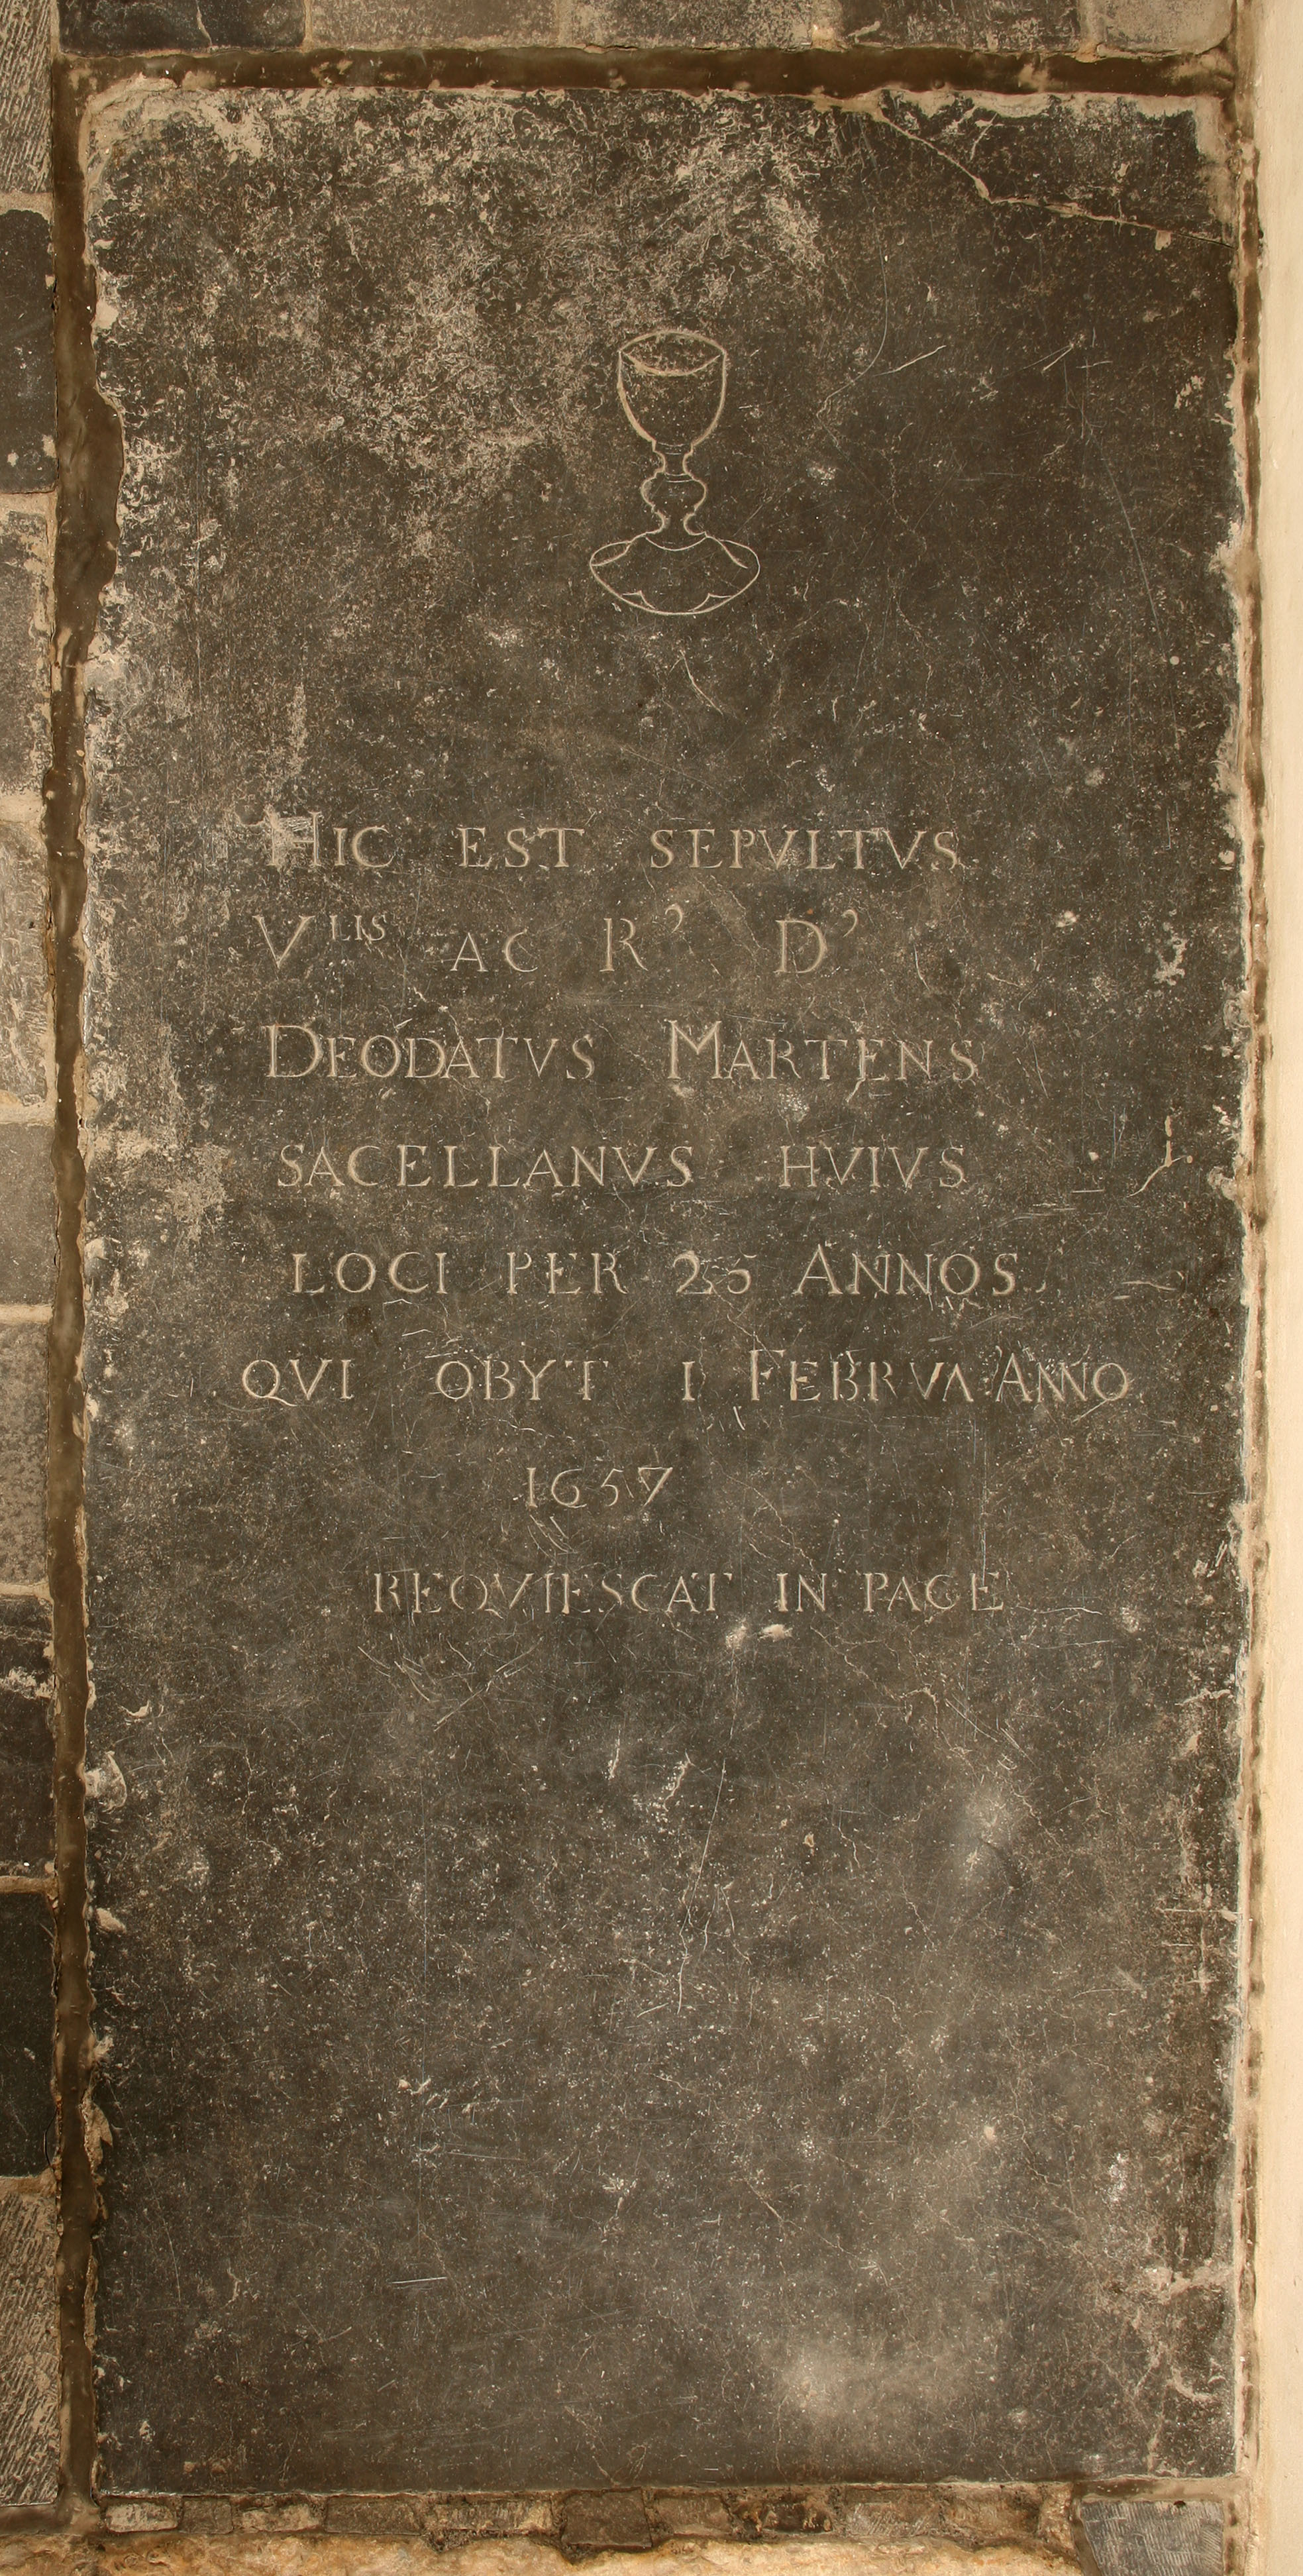 HIC EST SEPVLTVS
Vˡᶦˢ AC R’ D’
DEODATVS MARTENS
SACELLANVS HVIVS
LOCI PER 25 ANNOS
QVI OBYT 1 FEBRVA ANNO
1657
REQVIESCAT IN PACE